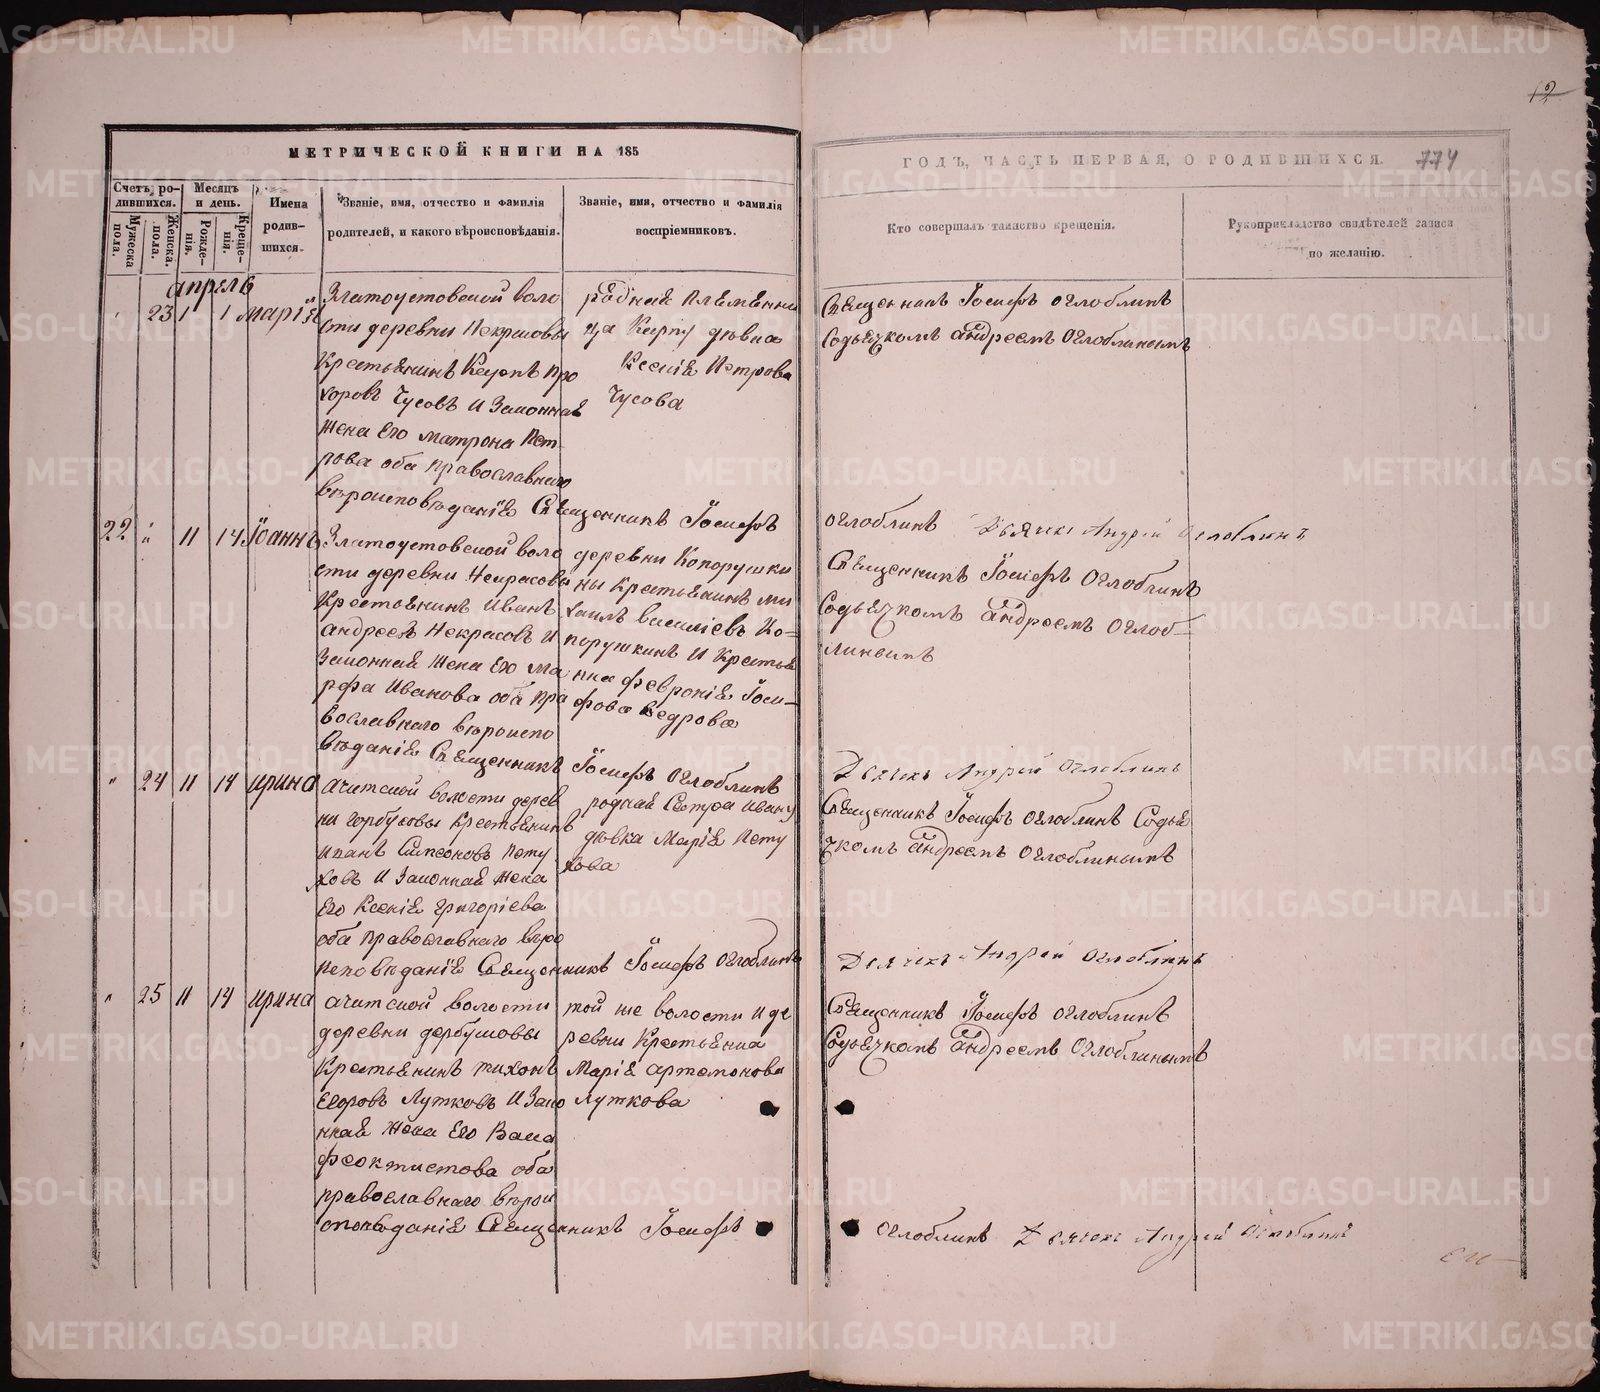 12
МЕТРИЧЕСКОЙ КНИГИ НА 185
ГОДЪ, ЧАСТЬ ПЕРВАЯ, О РОДИВШИХСЯ.
774
Счетъ ро-
дившихся.
Мужеска
пола.
Женска.
пола.
Месяцъ
и день.
Рожде-
нія.
Креще-
нія.
Имена
родив-
шихся.
Званіе, имя, отчество и фамилія
родителей, и какого вѣроисповѣданія.
Званіе, имя, отчество и фамилія
воспріемниковъ.
Кто совершалъ таинство крещенія.
Рукоприкладство свидѣтелей записи
по желанію.
апрель
23 1 1 Марія
Златоустовской воло
сти деревни Некрасовы
Крестьянинъ Карпъ Про
хоровъ Чусовъ И Законная
жена Его Матрона Пет
рова оба Православнаго
вѣроисповѣданіе Священникъ Іосифъ
роднае племенни
ца Карпу дѣвка
Ксеніе Петрова
Чусова
Священникъ Іосифъ Оглоблинъ
Содьячкомъ андреемъ Оглоблинымъ
Оглоблинъ Дьячекъ Андрей Оглоблинъ
22 " 11 14 Іоаннъ
Златоустовской воло
сти деревни Некрасовы
Крестьянинъ Иванъ
андреевъ Некрасовъ И
Законная жена Его Ма
рфа Иванова оба Пра
вославнаго вѣроиспо
вѣданіе Священникъ Іосифъ Оглоблинъ
деревни Копорушки
ны Крестьянинъ Ми
хаилъ василіевъ Ко-
порушкинъ И Крестья
нка февроніе Іоси-
фова Ведрова
Священникъ Іосифъ Оглоблинъ
Содьячкомъ андреемъ Оглоб-
линымъ
Дьячекъ Андрей Оглоблинъ
" 24 11 14 ирина
ачитской волости дерев
ни горбусовы Крестьянинъ
Иванъ Симеоновъ Пету
ховъ И Законная жена
Его Ксеніе григоріева
оба Православнаго вѣро
исповѣданіе Священникъ Іосифъ Оглоблинъ
родная Сестра Ивану
дѣвка Маріе Пету
хова
Священникъ Іосифъ Оглоблинъ Содья
чкомъ андреемъ Оглоблинымъ
Дьячекъ Андрей Оглоблинъ
" 25 11 14 ирина
ачитской волости
деревни дербушовы
Крестьянинъ тихонъ
Егоровъ Лутковъ И Зако
нная жена Его Васа
феоктистова оба
православнаго вѣрои
сповѣданіе Священникъ Іосифъ
той же волости и де
ревни Крестьянка
Маріе артамонова
Луткова
Священникъ Іосифъ Оглоблинъ
Содьячкомъ андреемъ Оглоблинымъ
Оглоблинъ Дьячекъ Андрей Оглоблинъ